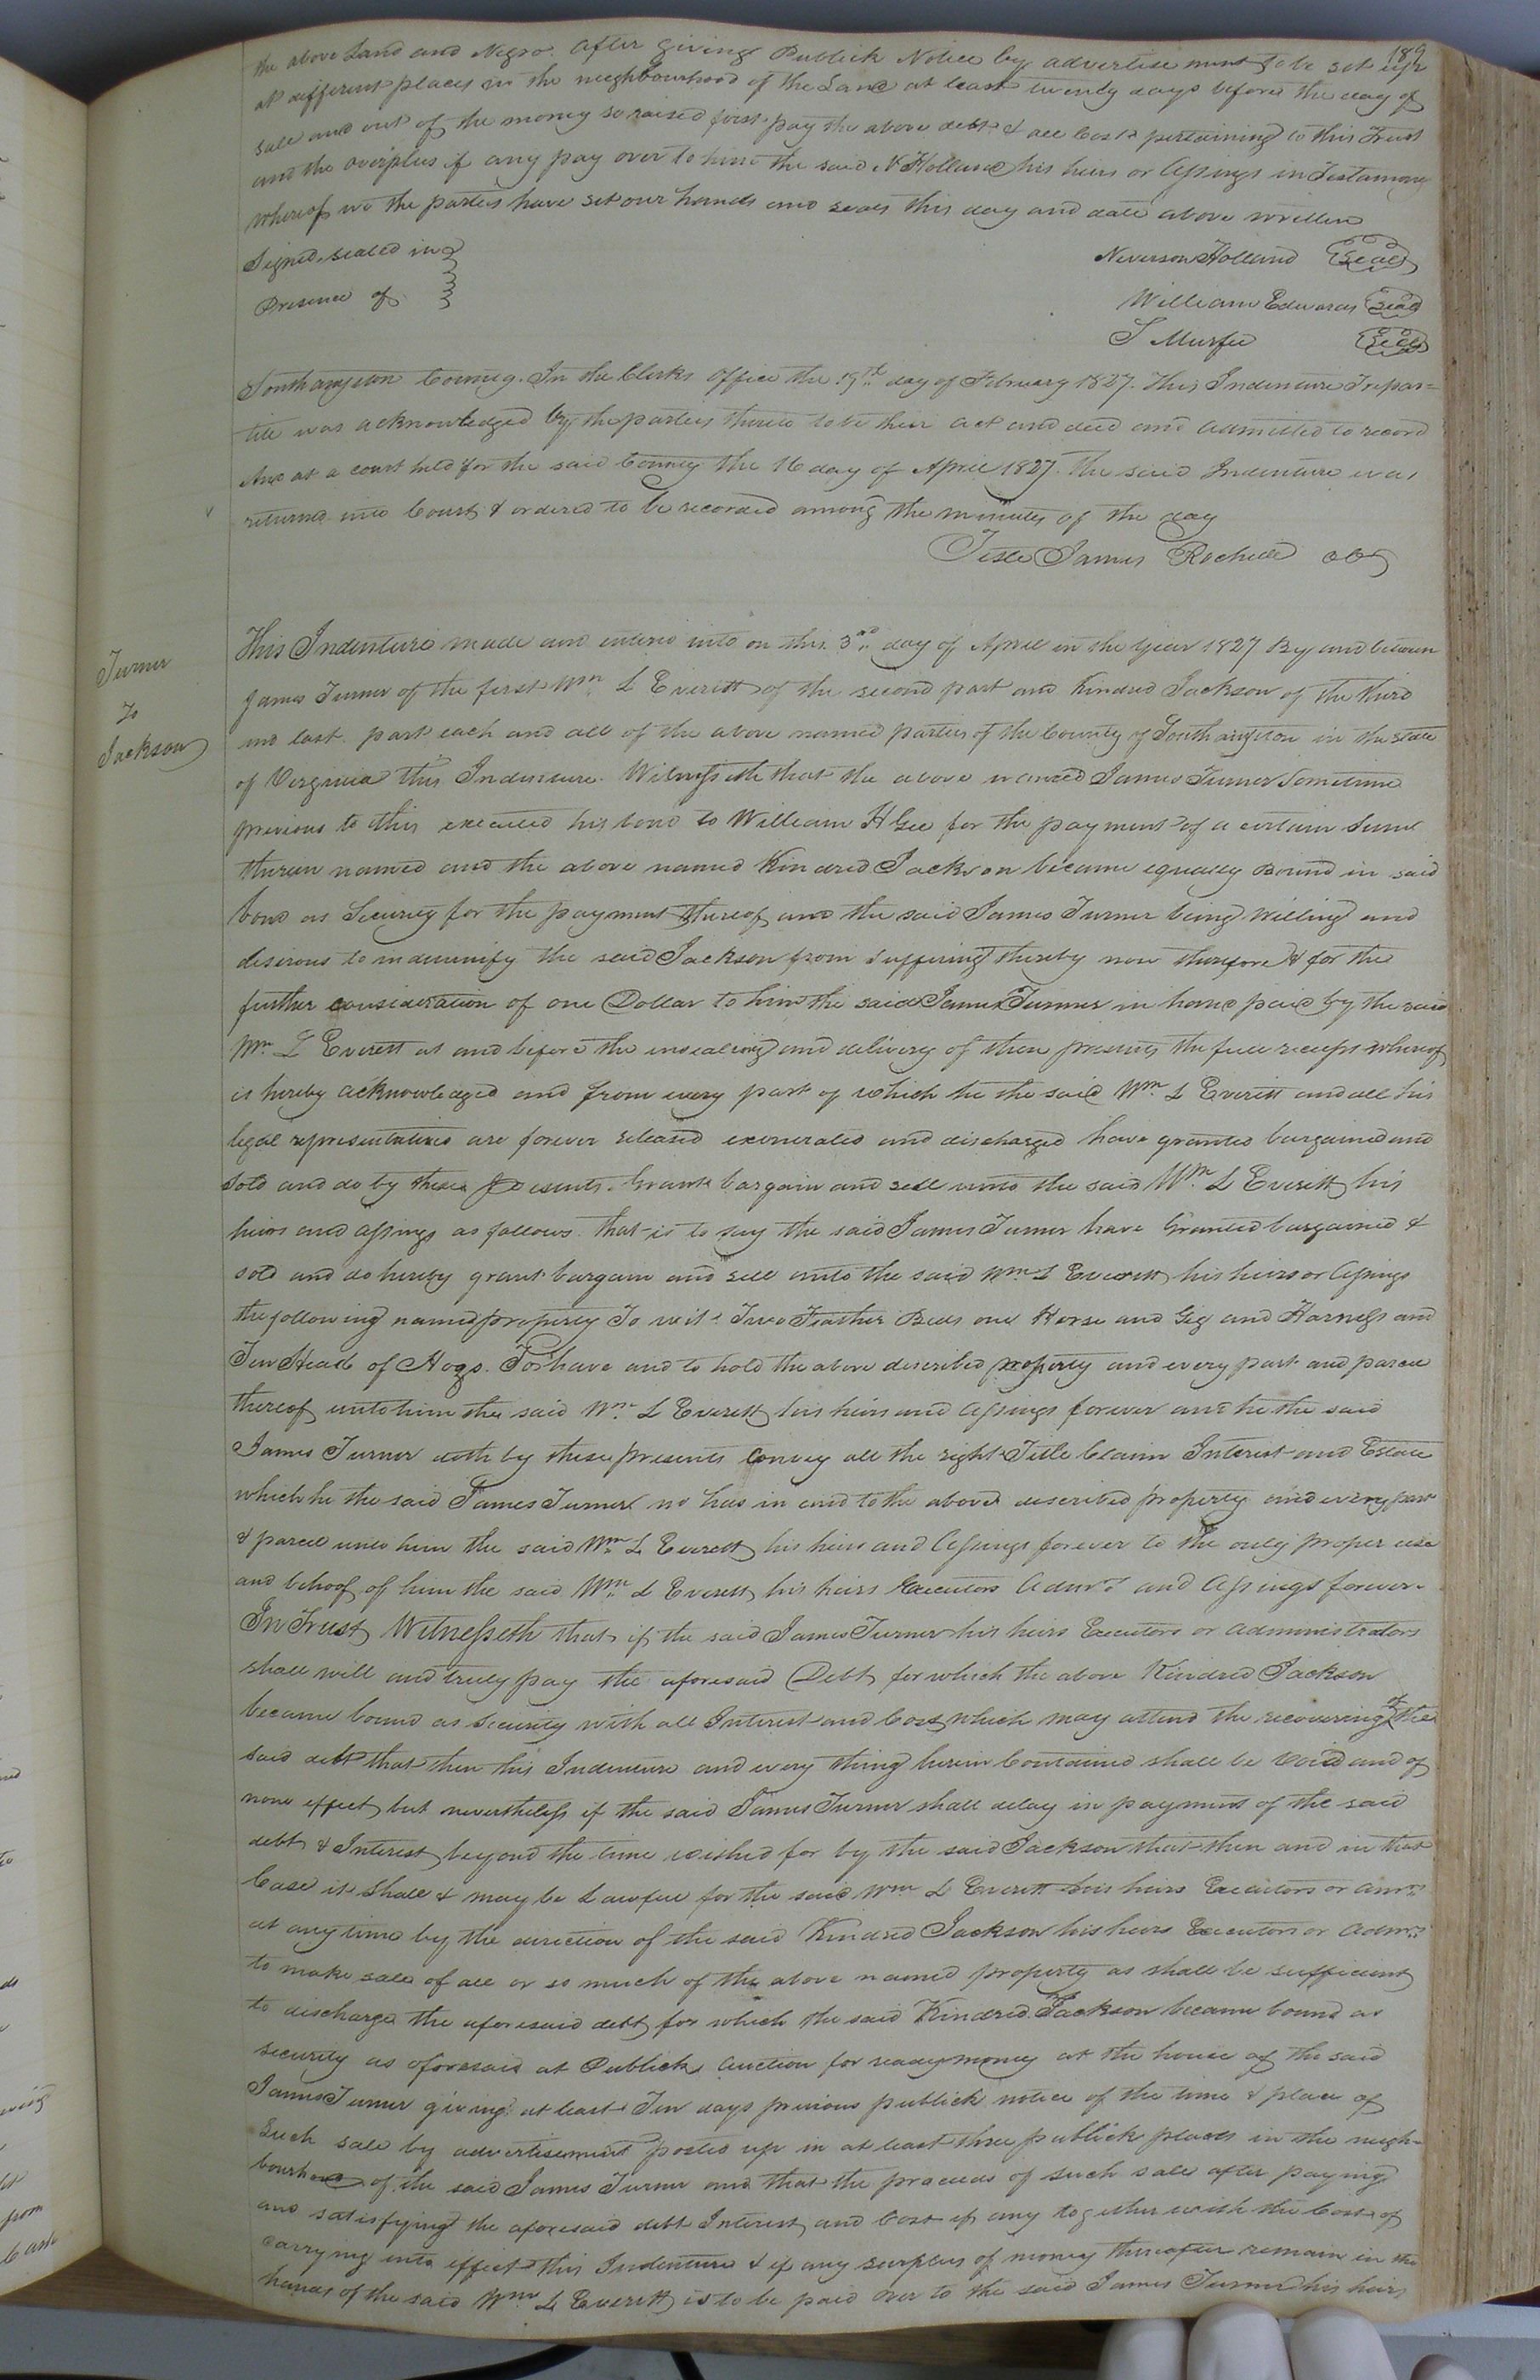 189
the above Land and Negro. After giving Publick Notice by advertisement to be set up
at different places in the neighbourhood of the Land at least twenty days before the day of
sale and out of the money so raised first pay the above debt & all Costs pertaining to this Trust
and the overplus if any pay over to him the said N Holland his heirs or Assings in Testamony
whereof we the parties have set our hands and seals this day and date above written
Signed, sealed in
Presence of
Neverson Holland Seal
William Edwards Seal
S Murfee Seal
Southampton County. In the Clerks Office the 19th day of February 1827. This Indenture Tripar=
tite was acknowledged by the parties thereto to be their act and deed and admitted to record
And at a court held for the said County the 16 day of April 1827. The said Indenture was
returned into Court & ordered to be recorded among the minutes of the day
Teste James Rochelle
Turner
To
Jackson
This Indenture made and entered into on this 3rd day of April in the year 1827 By and between
James Turner of the first Wm L Everitt of the second part and Kindred Jackson of the third
and last part each and all of the above named parties of the County of Southampton in the State
of Virginia this Indenture Witnesseth that the above named James Turner Sometime
previous to this executed his bond to William H Gee for the payment of a certain Sum
therein named and the above named Kindred Jackson became equally Bound in said
bond as Security for the payment thereof and the said James Turner being willing and
desirous to indemnify the said Jackson from suffering thereby now therefore & for the
further consideration of one Dollar to him the said James Turner in hand paid by the said
Wm L Everett at and before the ensealing and delivery of these presents the full receipt whereof
is hereby acknowledged and from every part of which he the said Wm L Everitt and all his
legal representatives are forever released exonerated and discharged have granted bargained and
Sold and do by these presents Grant bargain and sell unto the said Wm L Everitt his
heirs and assings as follows that is to say the said James Turner have Granted bargained &
sold and do hereby grant bargain and sell unto the said Wm L Everett his heirs or Assings
the following named property To wit. Two Feather Beds one Horse and Gig and Harness and
Ten Head of Hogs. To have and to hold the above described property and every part and parcel
thereof unto him the said Wm L Everett his heirs and Assings forever and he the said
James Turner doth by these presents Convey all the right Title Claim Interest and Estate
which he the said James Turner no has in and to the above described property and every part
& parcel unto him the said Wm L Everett his heirs and Assings forever to the only proper use
and behoof of him the said Wm L Everett his heirs Executors Admrs and Assings forever
In Trust Witnesseth that if the said James Turner his heirs Executors or administrators
shall will and truly pay the aforesaid Debt for which the above Kindred Jackson
became bound as Security with all Interest and Cost which may attend the recovering of the
said debt that then this Indenture and every thing herein Contained shall be void and of
none effect but nevertheless if the said James Turner shall delay in payment of the said
debt & Interest beyond the time wished for by the said Jackson that then and in that
Case it Shall & may be Lawfull for the said Wm L Everett his heirs Executors or
at any time by the direction of the said Kindred Jackson his heirs Executors or Admrs
to make sale of all or so much of the above named property as shall be sufficient
to discharge the aforesaid debt for which the said Kindred Jackson became bound as
security as aforesaid at Publick auction for ready money at the house of the said
James Turner giving at least Ten days previous publick notice of the time & place of
Such sale by advertisement posted up in at least three publick places in the neigh=
bourhood of the said James Turner and that the proceeds of such sale after paying
and satisfying the aforesaid debt Interest and Cost if any together with the Cost of
carrying into effect this Indenture & if any surplus of money thereafter remain in the
hands of the said Wm L Everett is to be paid over to the said James Turner his heirs